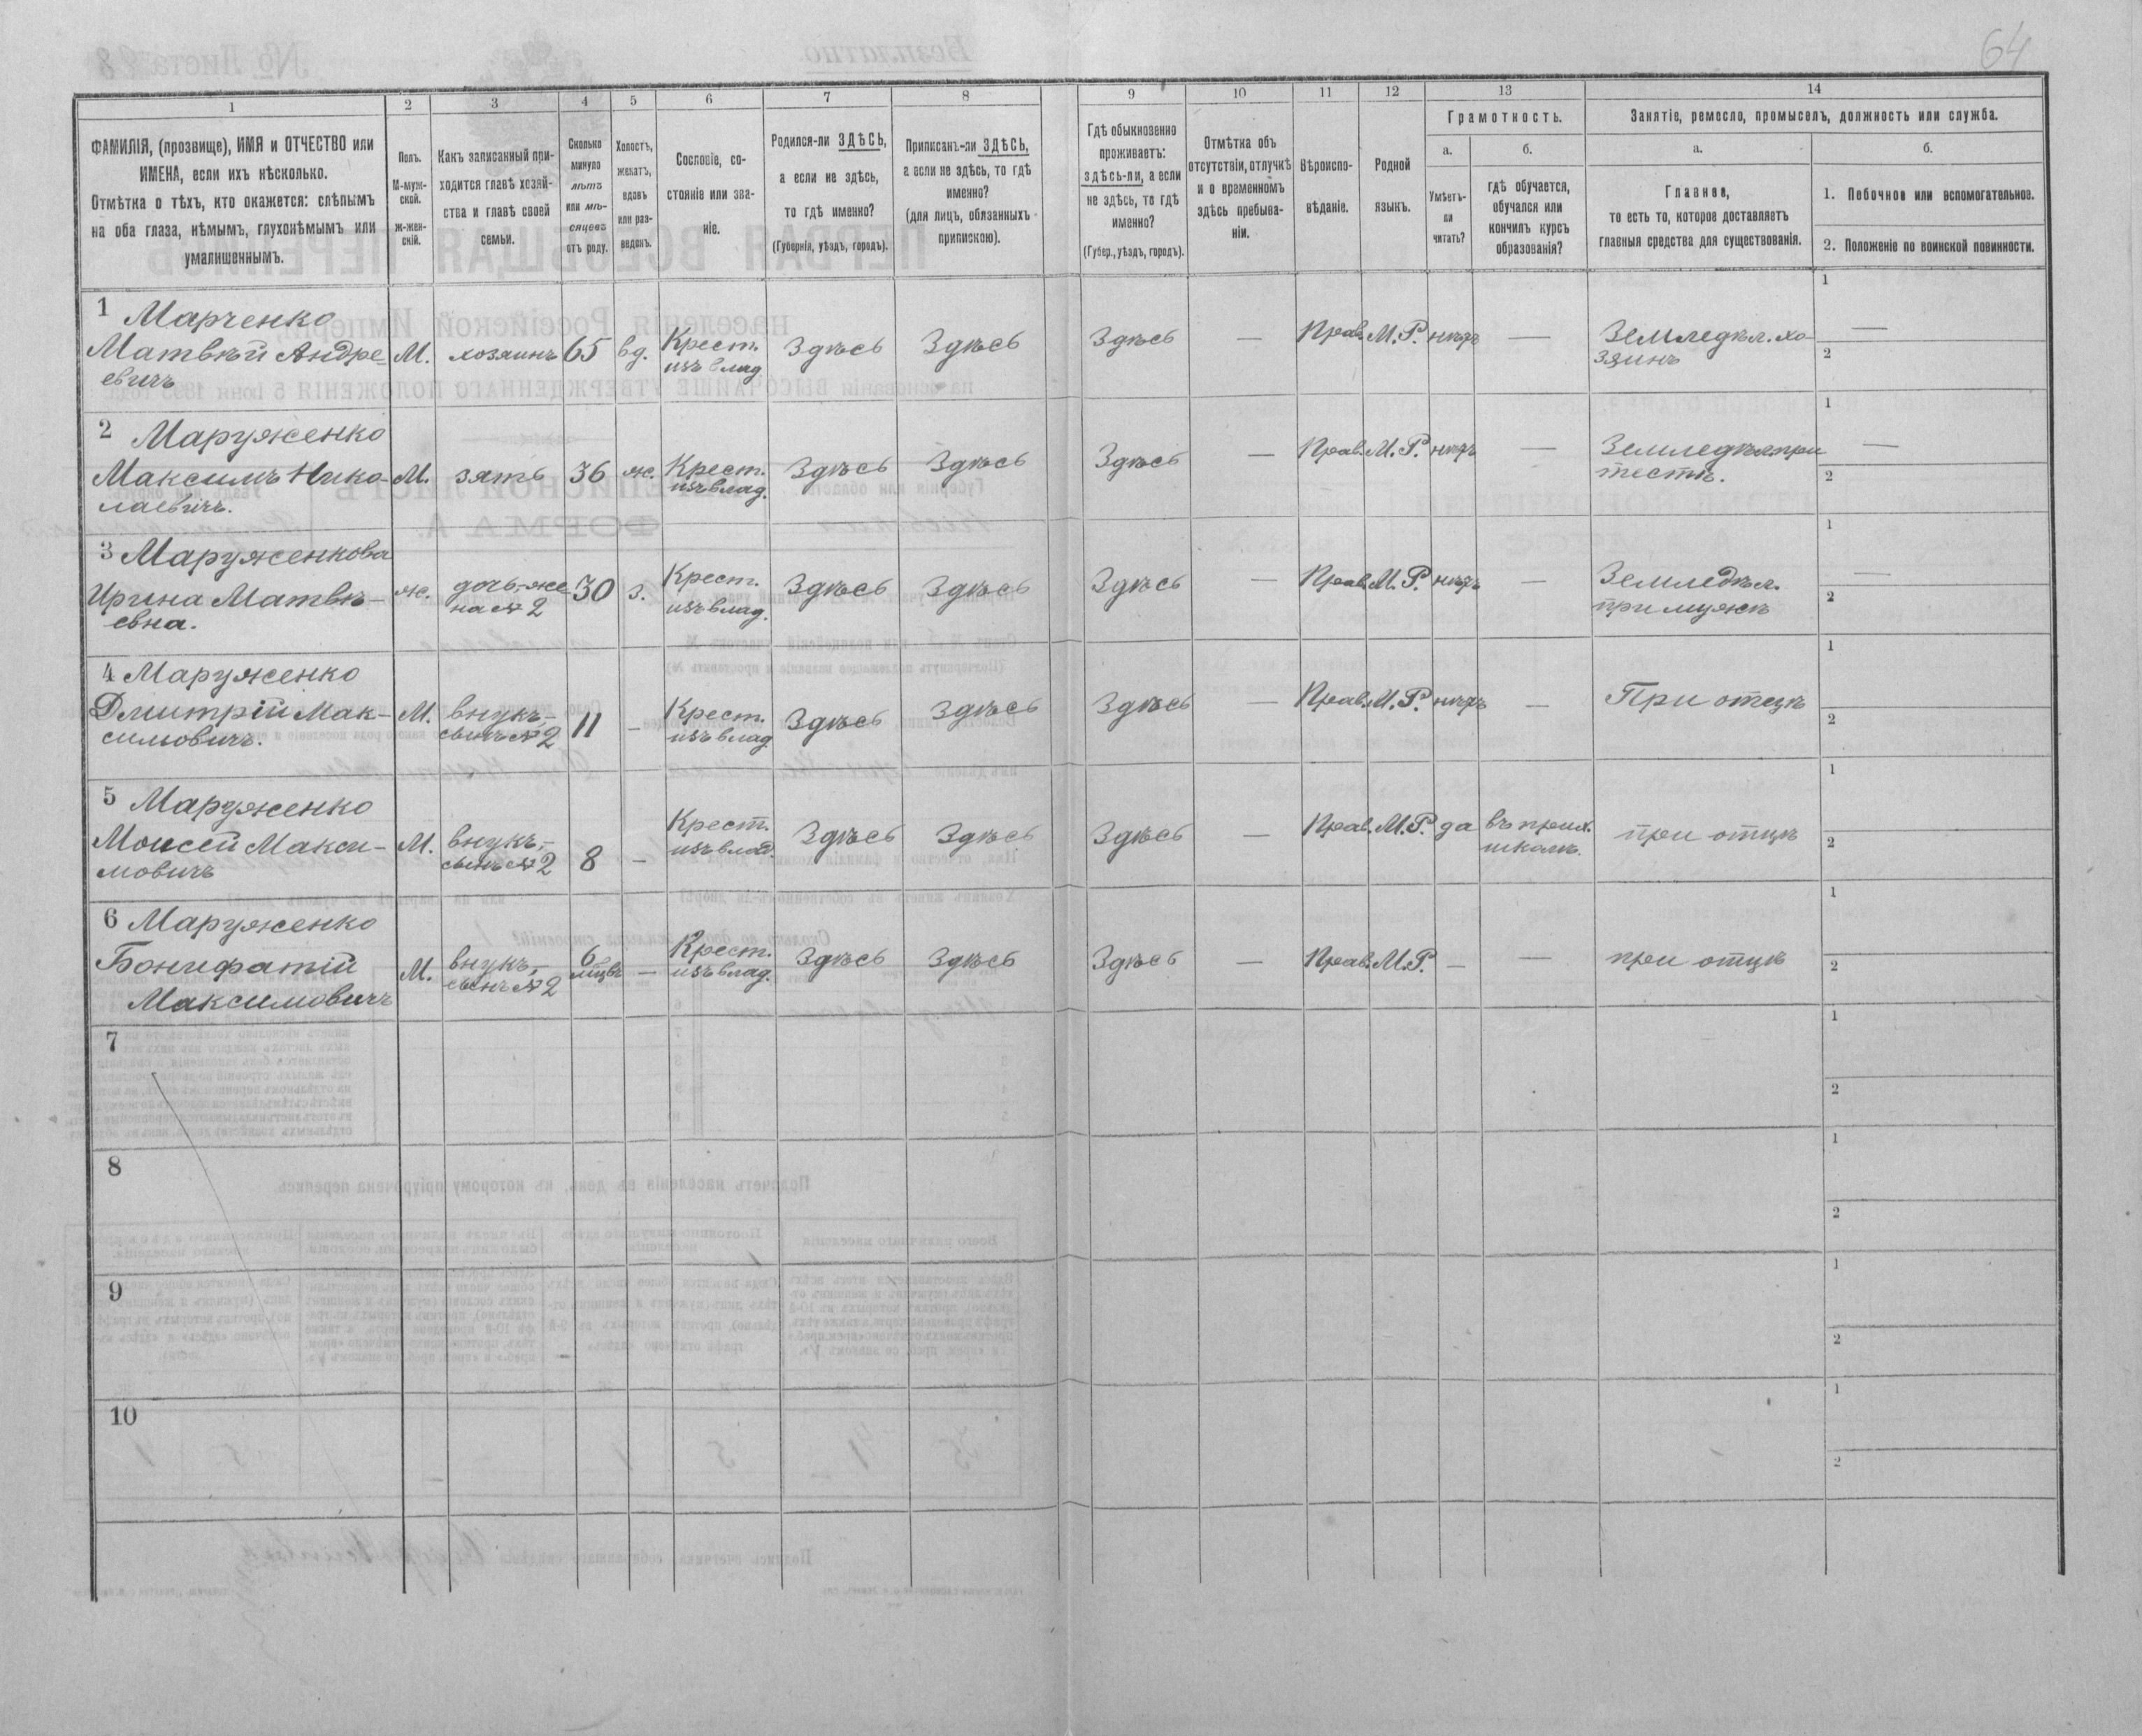 64
1 2 3 4 5 6 7 8 9 10 11 12 13 14
ФАМИЛІЯ, (прозвище), ИМЯ и ОТЧЕСТВО или
ИМЕНА, если ихъ нѣсколько.
Отмѣтка о тѣхъ, кто окажется: слѣпымъ
на оба глаза, нѣмымъ, глухонѣмымъ или
умалишеннымъ.
Полъ.
М-муж-
ской.
Ж-жен-
скій.
Какъ записанный при-
ходится главѣ хозяй-
ства и главѣ своей
семьи.
Сколько
минуло
лѣтъ
или мѣ-
сяцевъ
отъ роду.
Холостъ,
женатъ,
вдовъ
или раз-
веденъ.
Сословіе, со-
стояніе или зва-
ніе.
Родился-ли ЗДѢСЬ,
а если не здѣсь,
то гдѣ именно?
(Губернія, уѣздъ, городъ).
Приписанъ-ли ЗДѢСЬ,
а если не здѣсь, то гдѣ
именно?
(для лицъ, обязанныхъ
припискою).
Гдѣ обыкновенно
проживаетъ:
здѣсь-ли, а если
не здѣсь, то гдѣ
именно?
(Губер., уѣздъ, городъ).
Отмѣтка объ
отсутствіи, отлучкѣ
и о временномъ
здѣсь пребыва-
ніи.
Вѣроиспо-
вѣданіе.
Родной
языкъ.
Грамотность.
а.
Умѣетъ-
ли
читать?
б.
гдѣ обучается,
обучался или
кончилъ курсъ
образованія?
Занятіе, ремесло, промыселъ, должность или служба.
а.
Главное,
то есть то, которое доставляетъ
главныя средства для существованія.
б.
1. Побочное или вспомогательное.
2. Положеніе по воинской повинности.
1 Марченко
Матвѣй Андре- М. хозяинъ 65 вд. Крест. Здѣсь Здѣсь Здѣсь — Прав. М.Р. нѣтъ — Земледѣл. хо- 1 —
евичъ изъ влад. зяинъ 2
2 Маруженко
Максимъ Нико- М. зять 36 ж. Крест. Здѣсь Здѣсь Здѣсь — Прав. М.Р. нѣтъ — Земледѣл. при 1 —
лаевичъ. изъ влад. тестѣ. 2
3 Маруженкова
Ирина Матвѣ- ж. дочь,-же- 30 з. Крест. Здѣсь Здѣсь Здѣсь — Прав. М.Р. нѣтъ — Земледѣл. 1 —
евна. на № 2 изъ влад. при мужѣ 2
4 Маруженко
Дмитрій Мак- М. внукъ,- 11 – Крест. Здѣсь Здѣсь Здѣсь — Прав. М.Р. нѣтъ — При отцѣ 1
симовичъ. сынъ № 2 изъ влад. 2
5 Маруженко
Моисей Макси- М. внукъ,- 8 – Крест. Здѣсь Здѣсь Здѣсь — Прав. М.Р. да въ прих. при отцѣ 1
мовичъ сынъ № 2 изъ влад. школѣ. 2
6 Маруженко
Бонифатій М. внукъ,- 6 — Крест. Здѣсь Здѣсь Здѣсь — Прав. М.Р. – — при отцѣ 1
Максимовичъ сынъ № 2 мцвъ изъ влад. 2
7 1
2
8 1
2
9 1
2
10 1
2